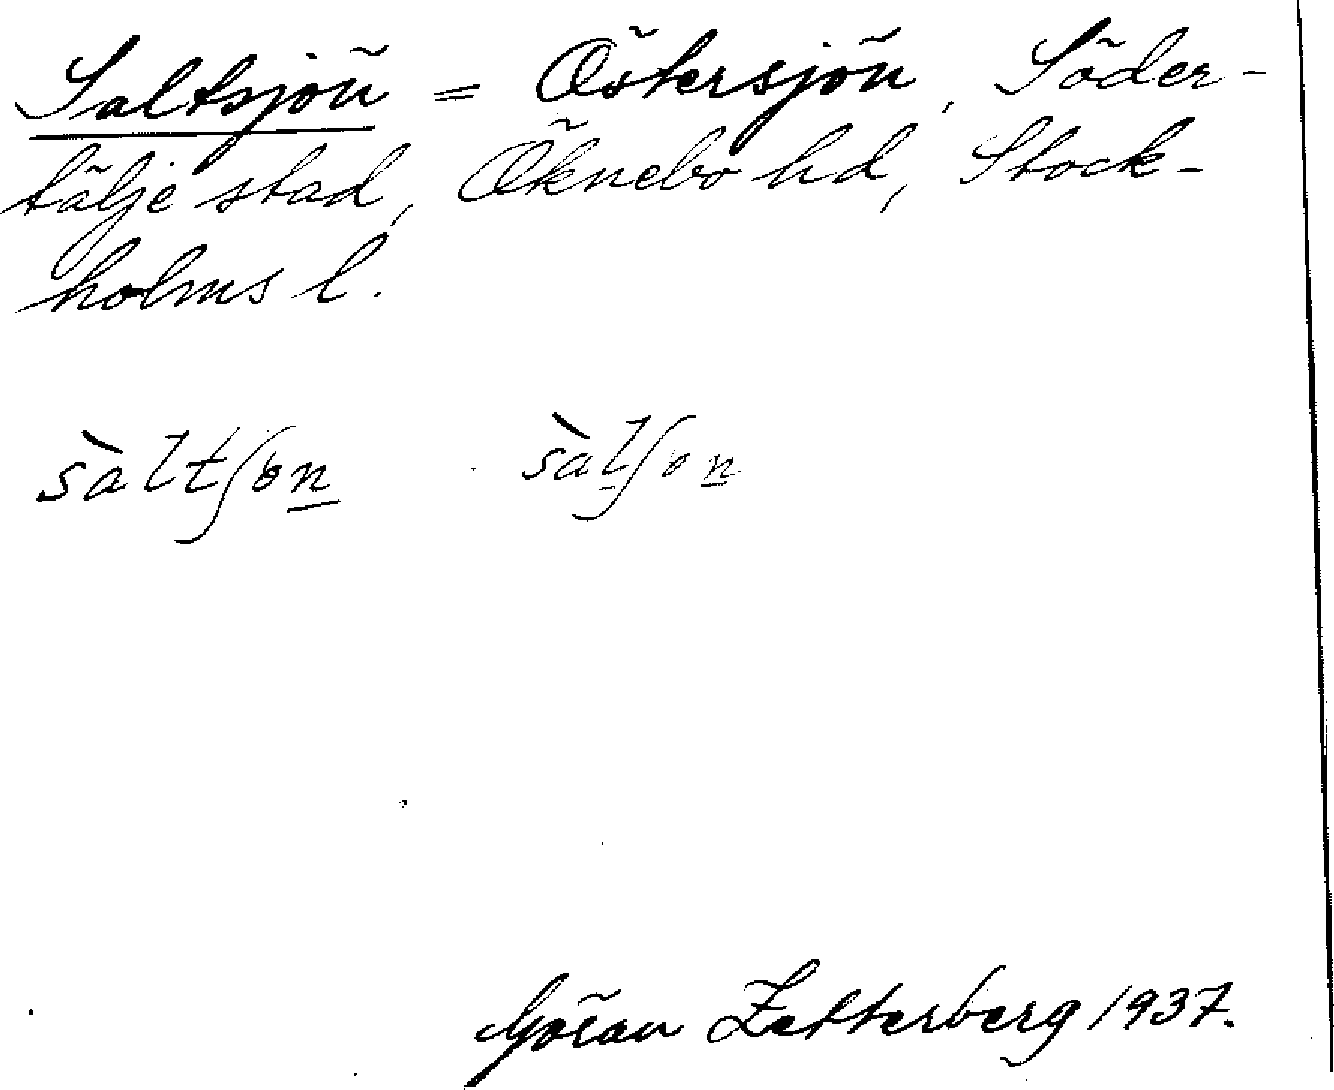 Saltsjön = Östersjön, Söder-
tälje stad, Öknebo hd, Stock-
holms l.
sàltʃön sàlʃön
Göran Zetterberg 1937.